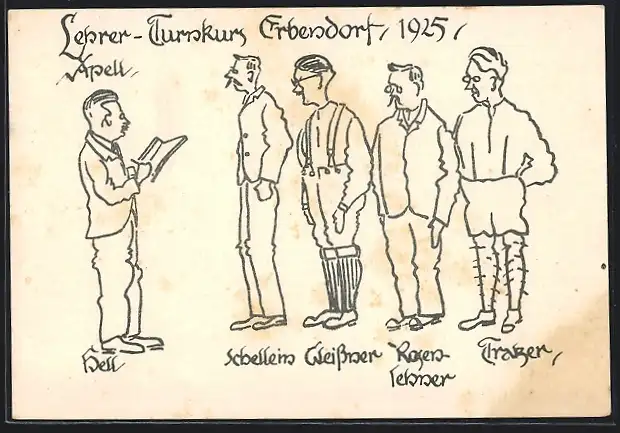 Lehrer-Turnkurs Erbendorf, 1925,
Apell,
Hell
Schellein Gleißner Rosen-
lehner
Tratzer,